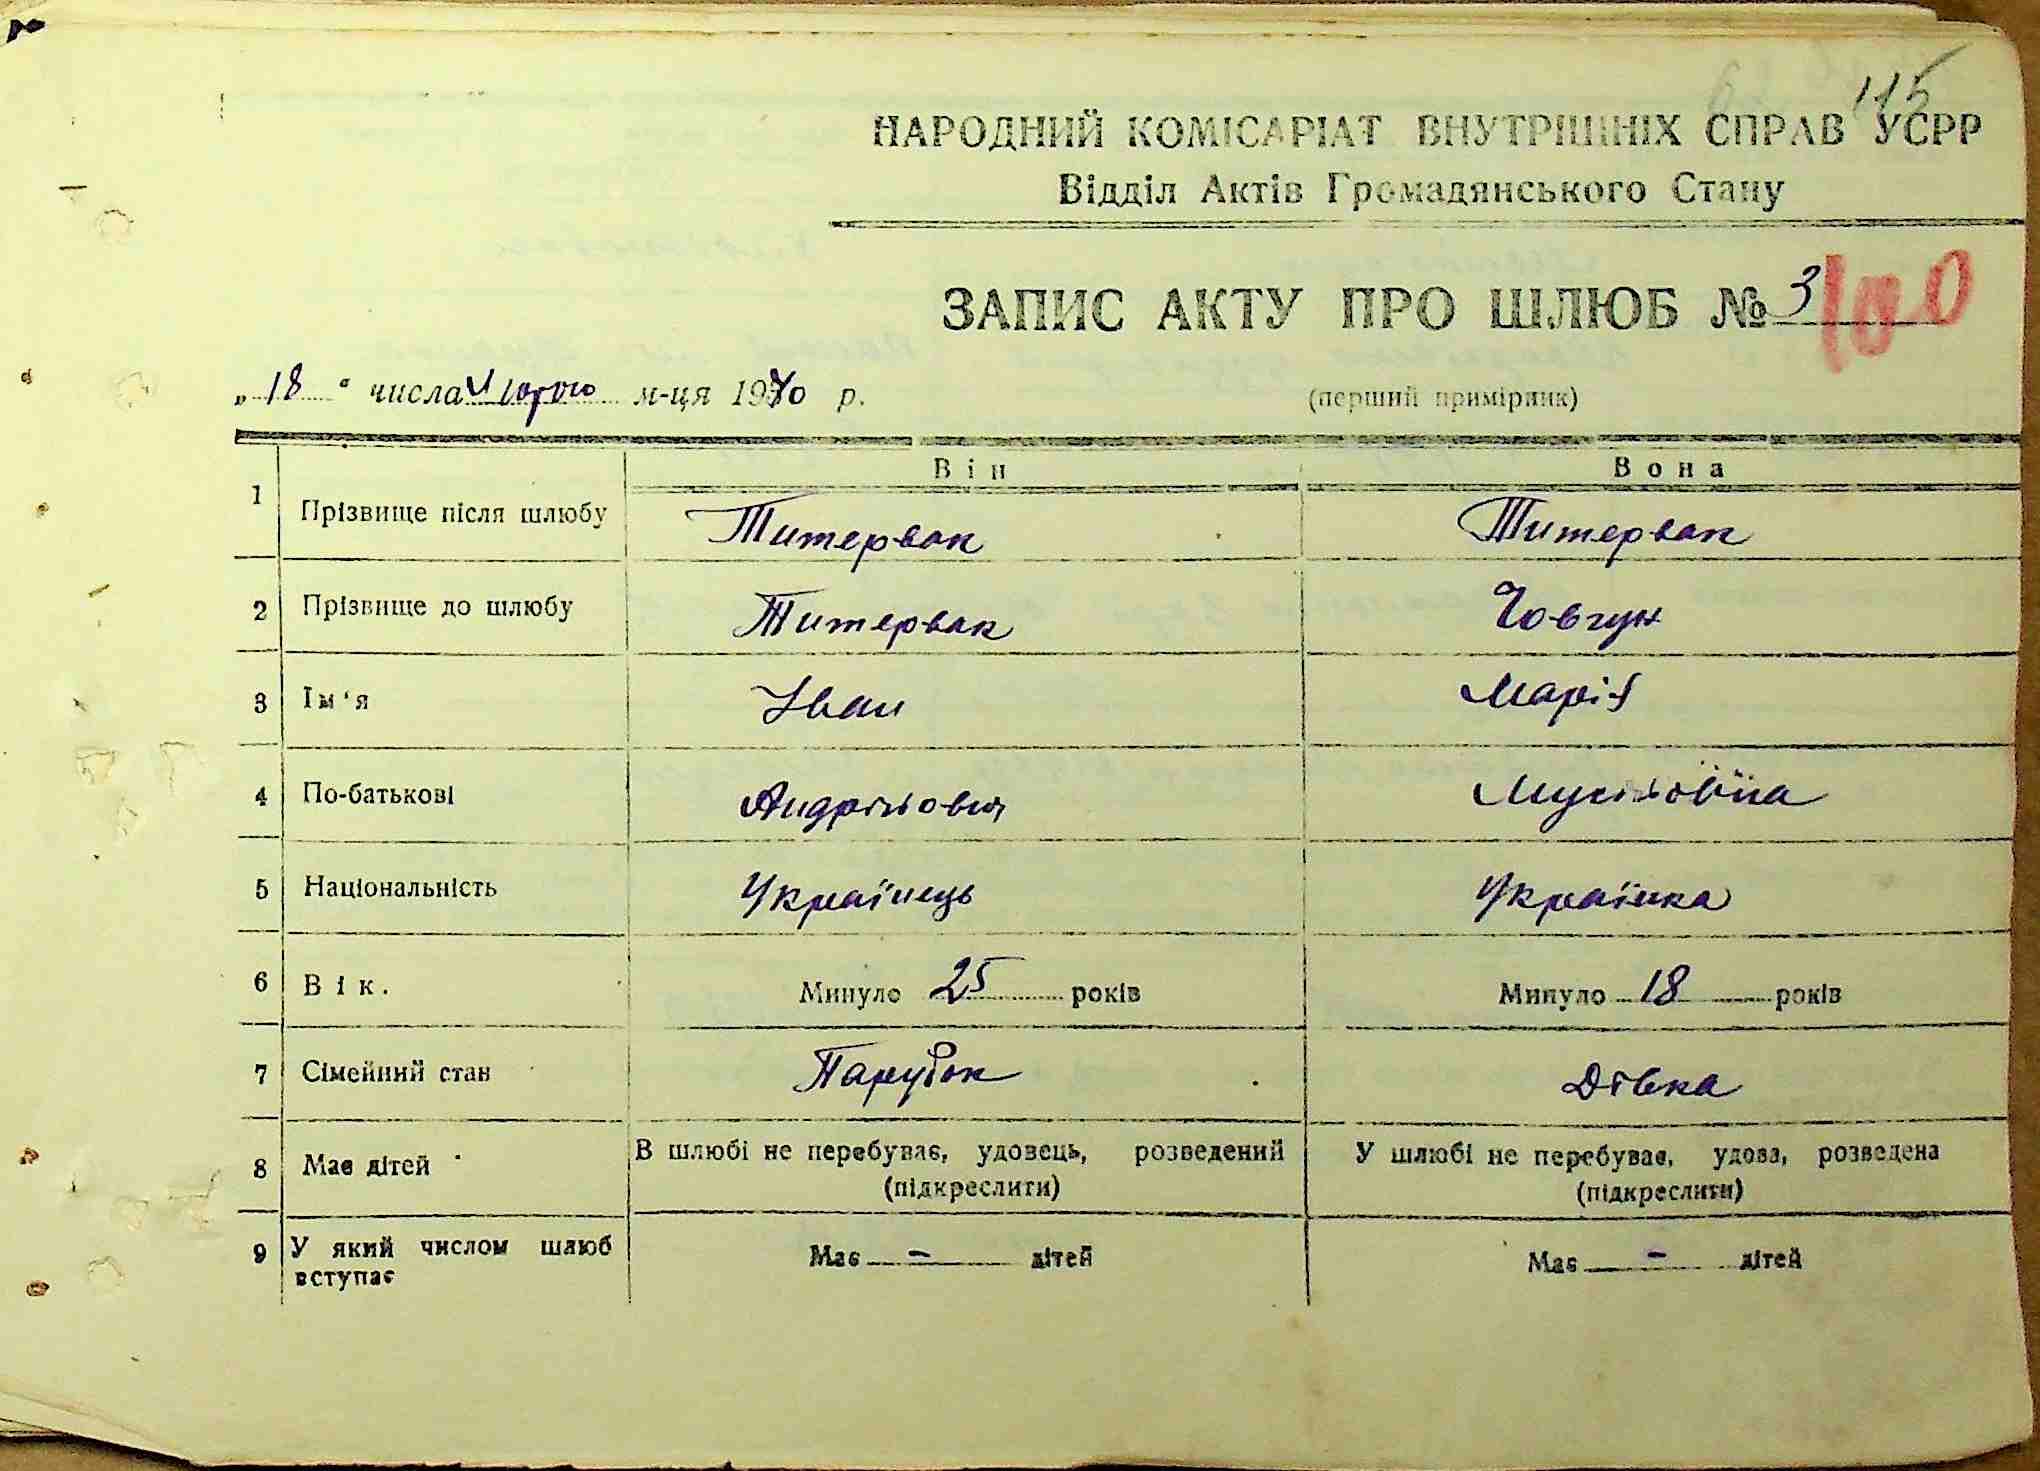 115
НАРОДНИЙ КОМІСАРІАТ ВНУТРІШНІХ СПРАВ УСРР
Відділ Актів Громадянського Стану
ЗАПИС АКТУ ПРО ШЛЮБ № 3 100
„ 18 “ числа Лютого м-ця 1940 р.
(перший примірник)
Він Вона
1 Прізвище після шлюбу Титервак Титервак
2 Прізвище до шлюбу Титервак Човгун
3 Ім'я Іван Марія
4 По-батькові Андрійович
5 Національність Українець Українка
6 Вік. Минуло 25 років Минуло 18 років
7 Сімейний стан Парубок Дівка
8 Має дітей В шлюбі не перебуває, удовець, розведений У шлюбі не перебуває, удова, розведена
(підкреслити) (підкреслити)
9 У який числом шлюб Має - дітей Має - дітей
вступає